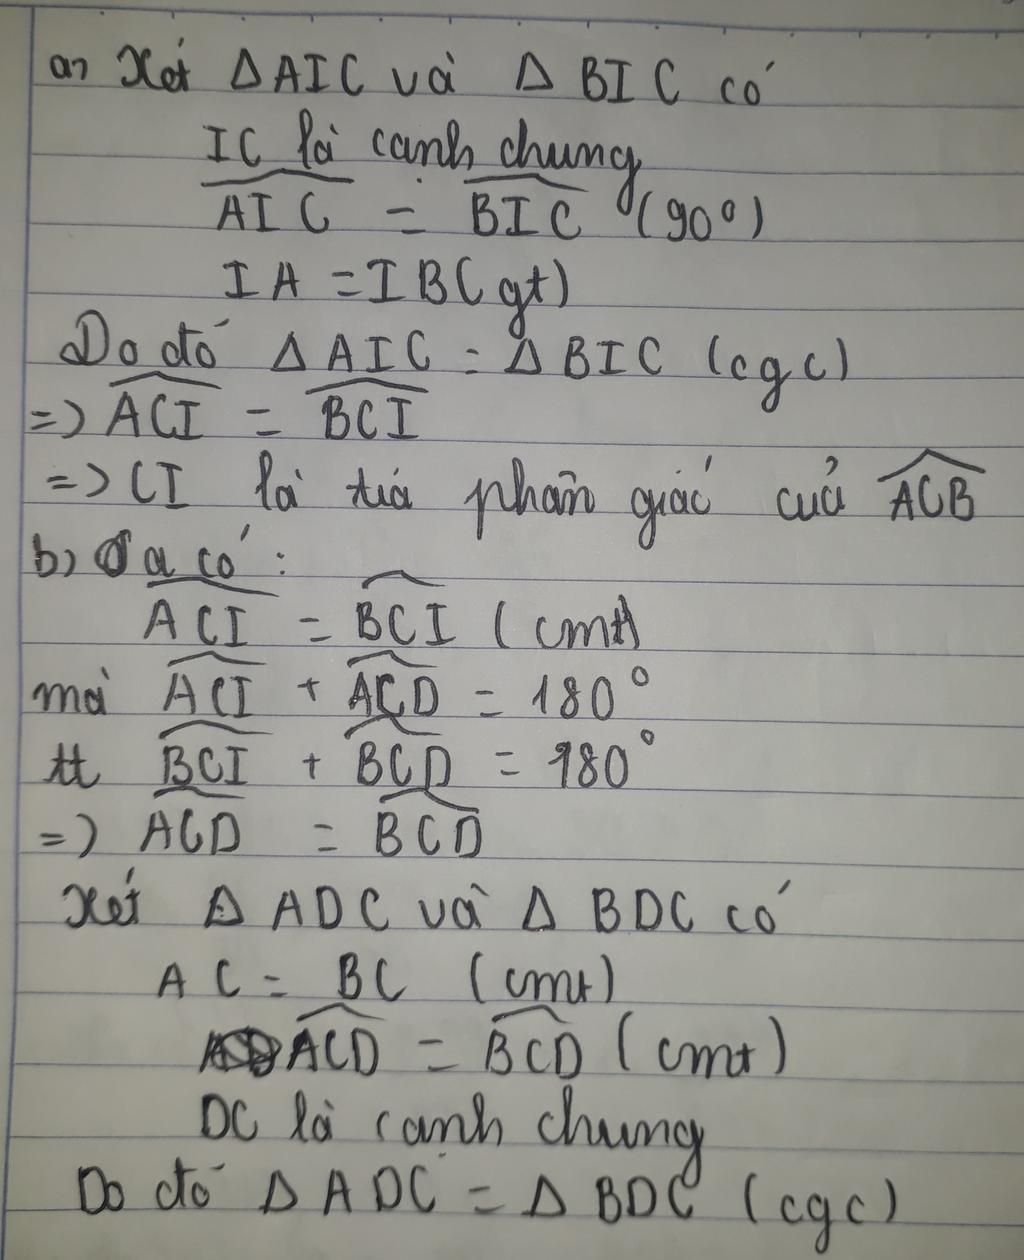 a, Xét Δ AIC và Δ BIC có
IC là cạnh chung
AIC = BIC (90°)
IA = IB (gt)
Do đó Δ AIC = Δ BIC (cgc)
=> ACI = BCI
=> CI là tia phân giác của ACB
b, Ta có:
ACI = BCI (cmt)
mà ACI + ACD = 180°
tt BCI + BCD = 180°
=> ACD = BCD
Xét Δ ADC và Δ BDC có
AC = BC (cmt)
ACD = BCD (cmt)
DC là cạnh chung
Do đó Δ ADC = Δ BDC (cgc)